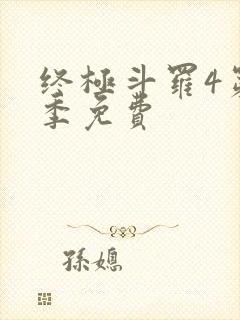 终極斗羅4第
季免費
孫媳